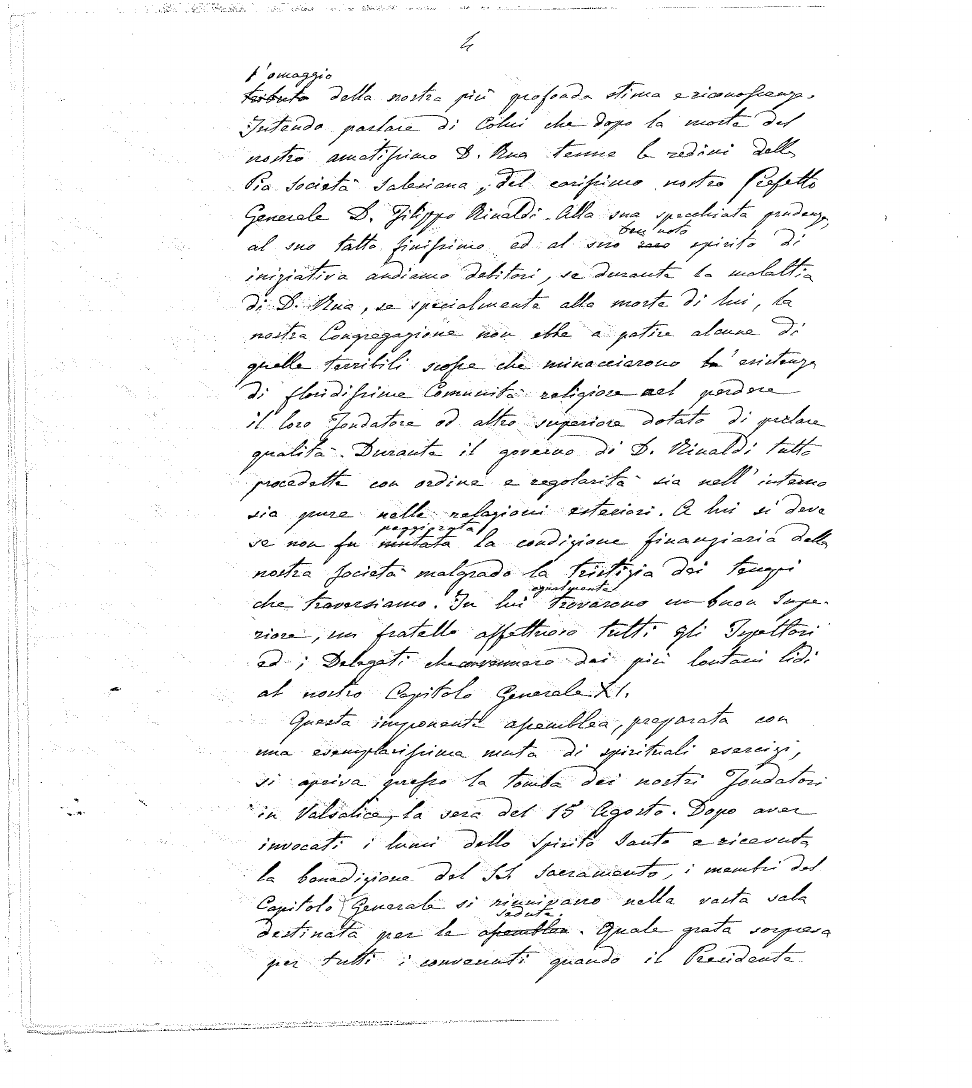 4
l'omaggio
tributo della nostra più profonda stima e riconoscenza.
Intendo parlare di Colui che dopo la morte del
nostro amatissimo D. Rua tenne le redini della
Pia Società Salesiana, del carissimo nostro Prefetto
Generale D. Filippo Rinaldi. Alla sua specchiata prudenza,
ben noto
al suo tatto finissimo ed al suo raro spirito di
iniziativa andiamo debitori, se durante la malattia
di D. Rua, se specialmente alla morte di lui, la
nostra Congregazione non ebbe a patire alcune di
quelle terribili scosse che minacciarono l'esistenza
di floridissime Comunità religiose nel perdere
il loro Fondatore od altro superiore dotato di preclare
qualità. Durante il governo di D. Rinaldi tutto
procedette con ordine e regolarità sia nell'interno
sia pure nelle relazioni esteriori. A lui si deve
peggiorata
se non fu mutata la condizione finanziaria della
nostra Società malgrado la tristizia dei tempi
egualmente
che traversiamo. In lui trovarono un buon Supe-
riore, un fratello affettuoso tutti gli Ispettori
ed i Delegati che convennero dai più lontani lidi
al nostro Capitolo Generale XI.
Questa imponente assemblea, preparata con
una esemplarissima muta di spirituali esercizi,
si apriva presso la tomba dei nostri Fondatori
in Valsalice, la sera del 15 Agosto. Dopo aver
invocati i lumi dello Spirito Santo e ricevuta
la benedizione del SS. Sacramento, i membri del
Capitolo Generale si riunivano nella vasta sala
sedute.
destinata per le assemblee. Quale grata sorpresa
per tutti i convenuti quando il Presidente